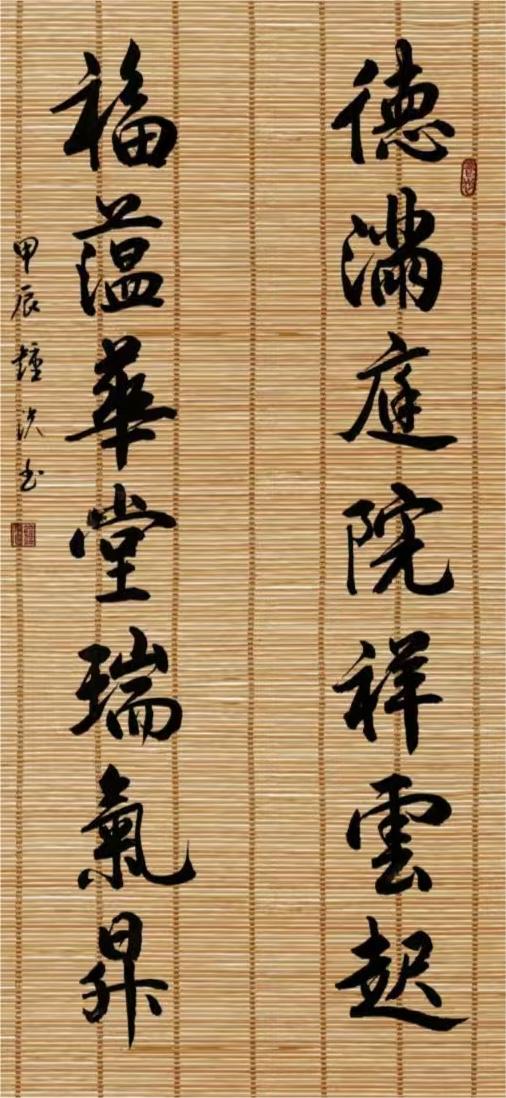 德滿庭院祥雲起
福蕴華堂瑞氣昇
甲辰 書